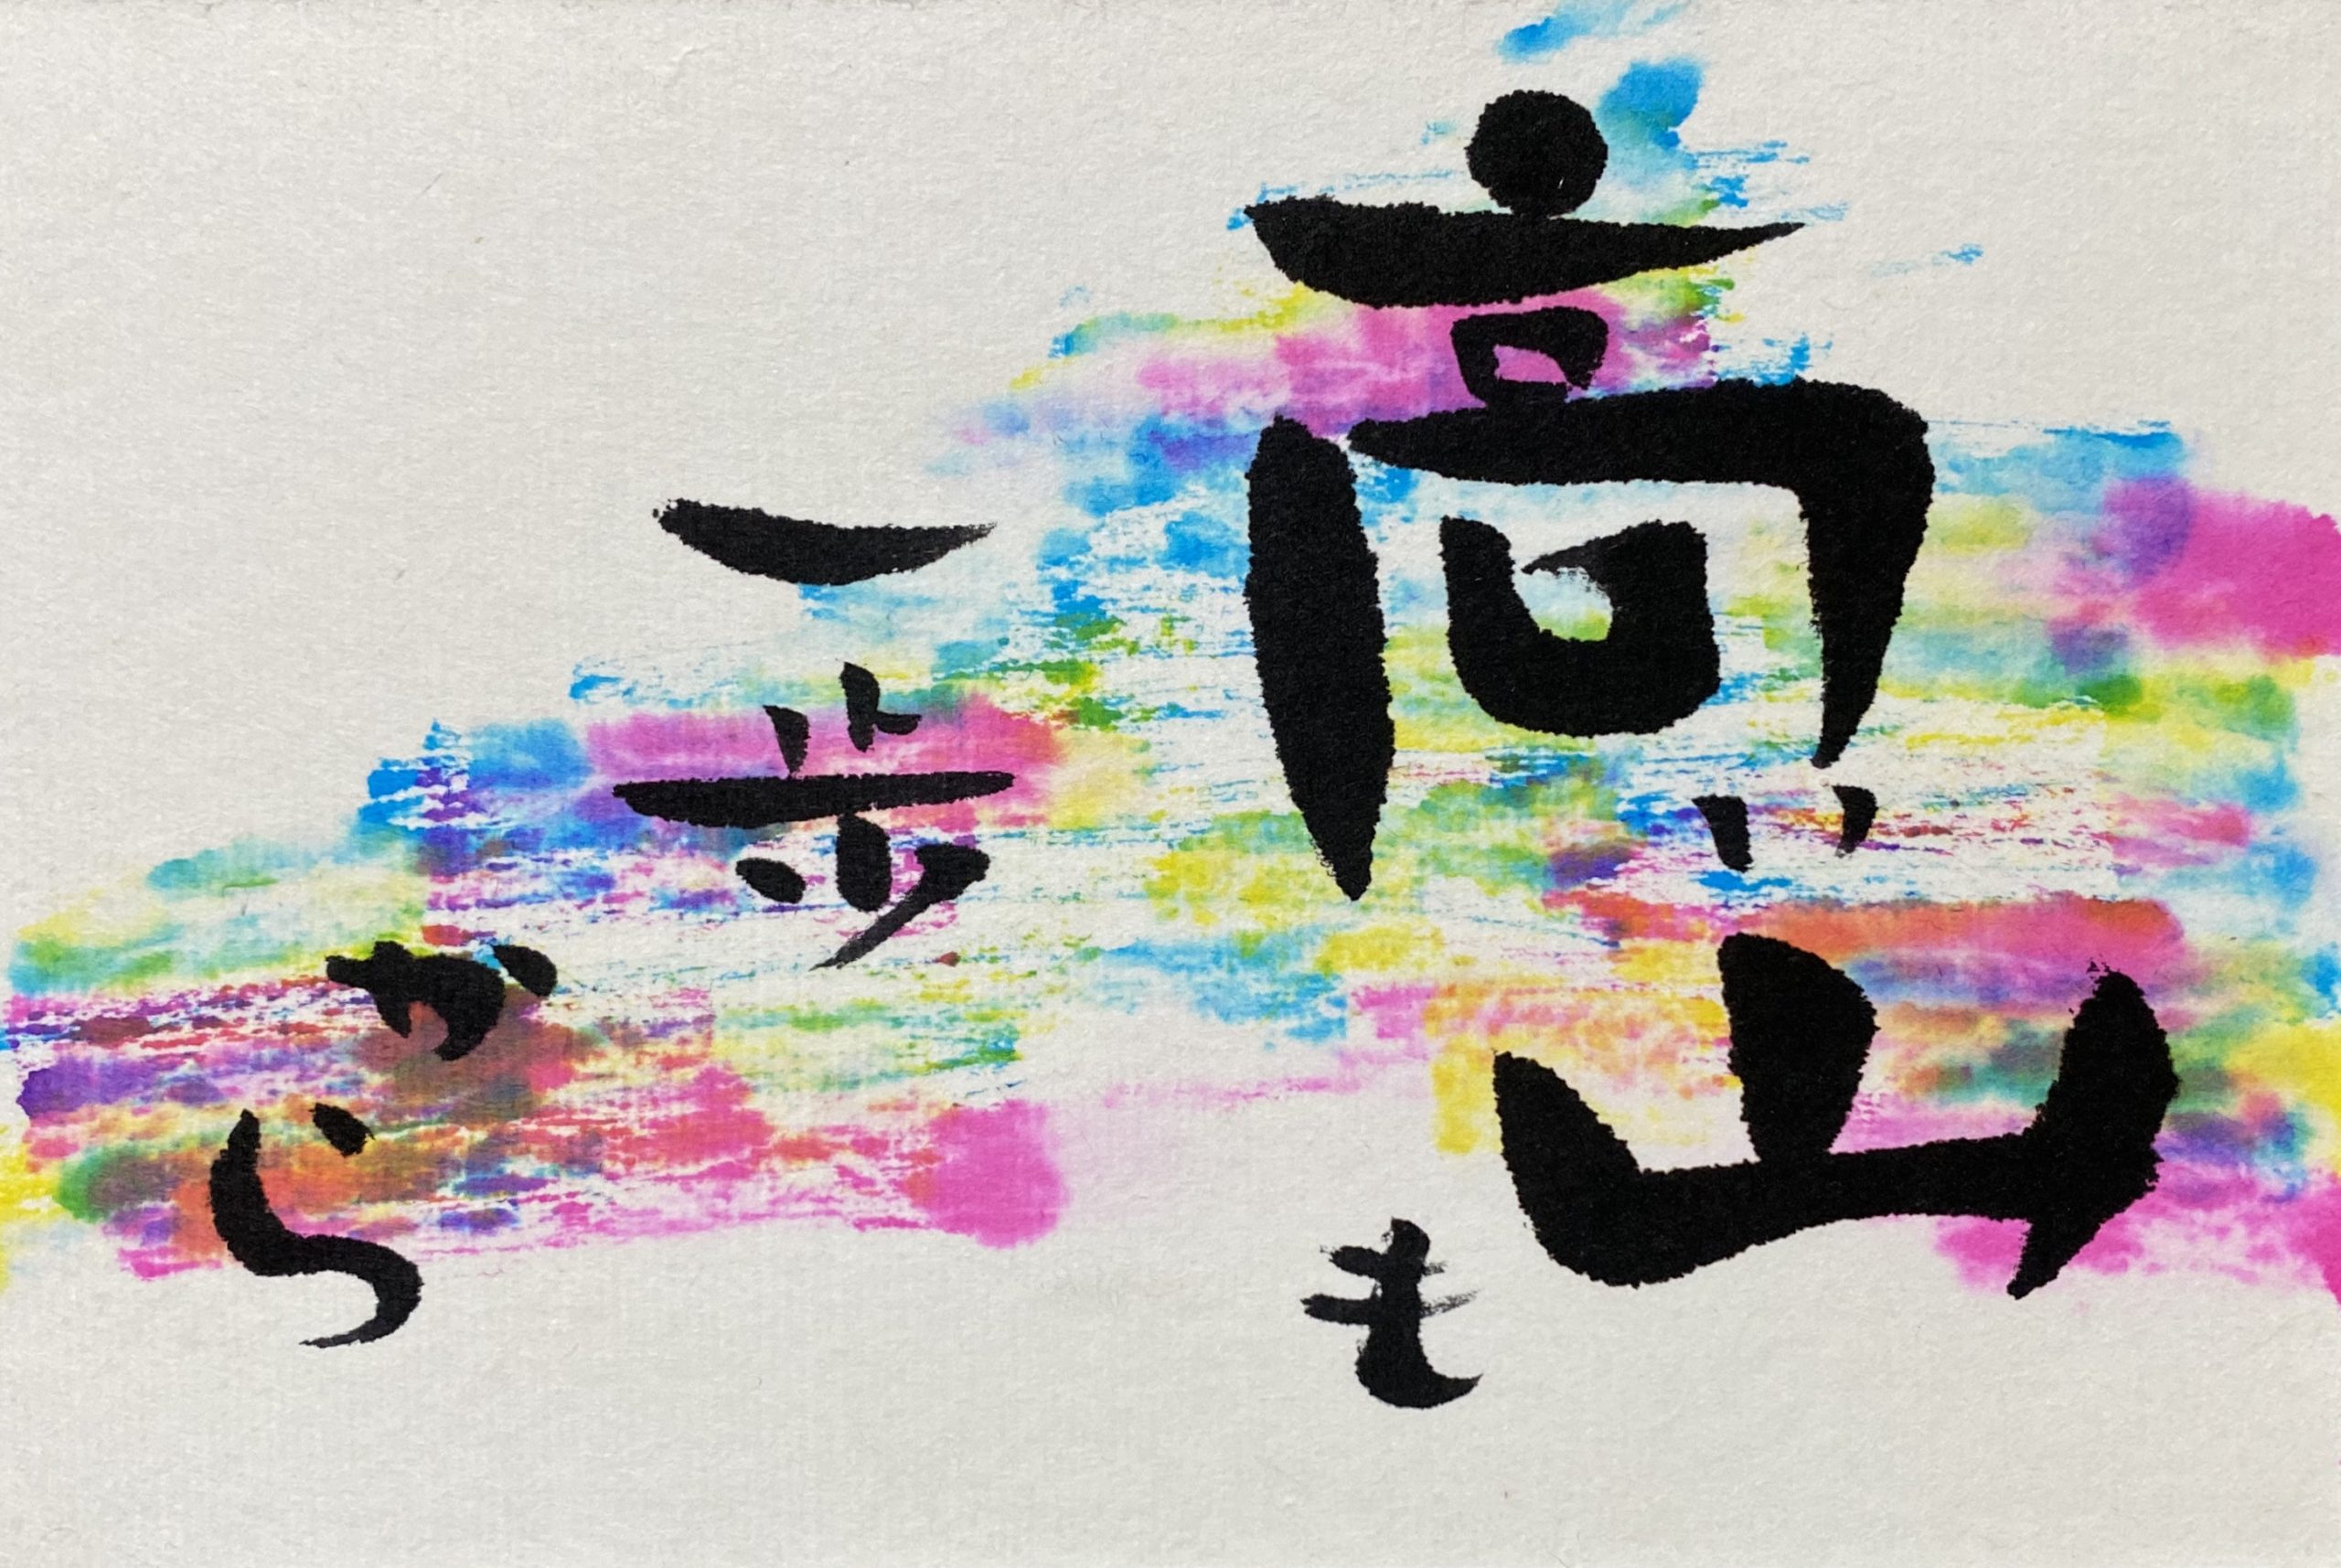 高い山も
一歩から